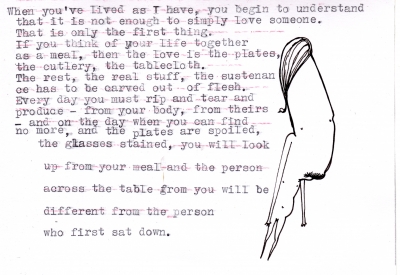 When you've lived as I have, you begin to understand
that it is not enough to simply love someone.
That is only the first thing.
If you think of your life together
as a meal, then the love is the plates,
the cutlery, the tablecloth.
The rest, the real stuff, the sustenan
ce has to be carved out of flesh.
Every day you must rip and tear and
produce - from your body, from theirs
- and on the day when you can find
no more, and the plates are spoiled,
the glasses stained, you will look
up from your meal and the person
across the table from you will be
different from the person
who first sat down.